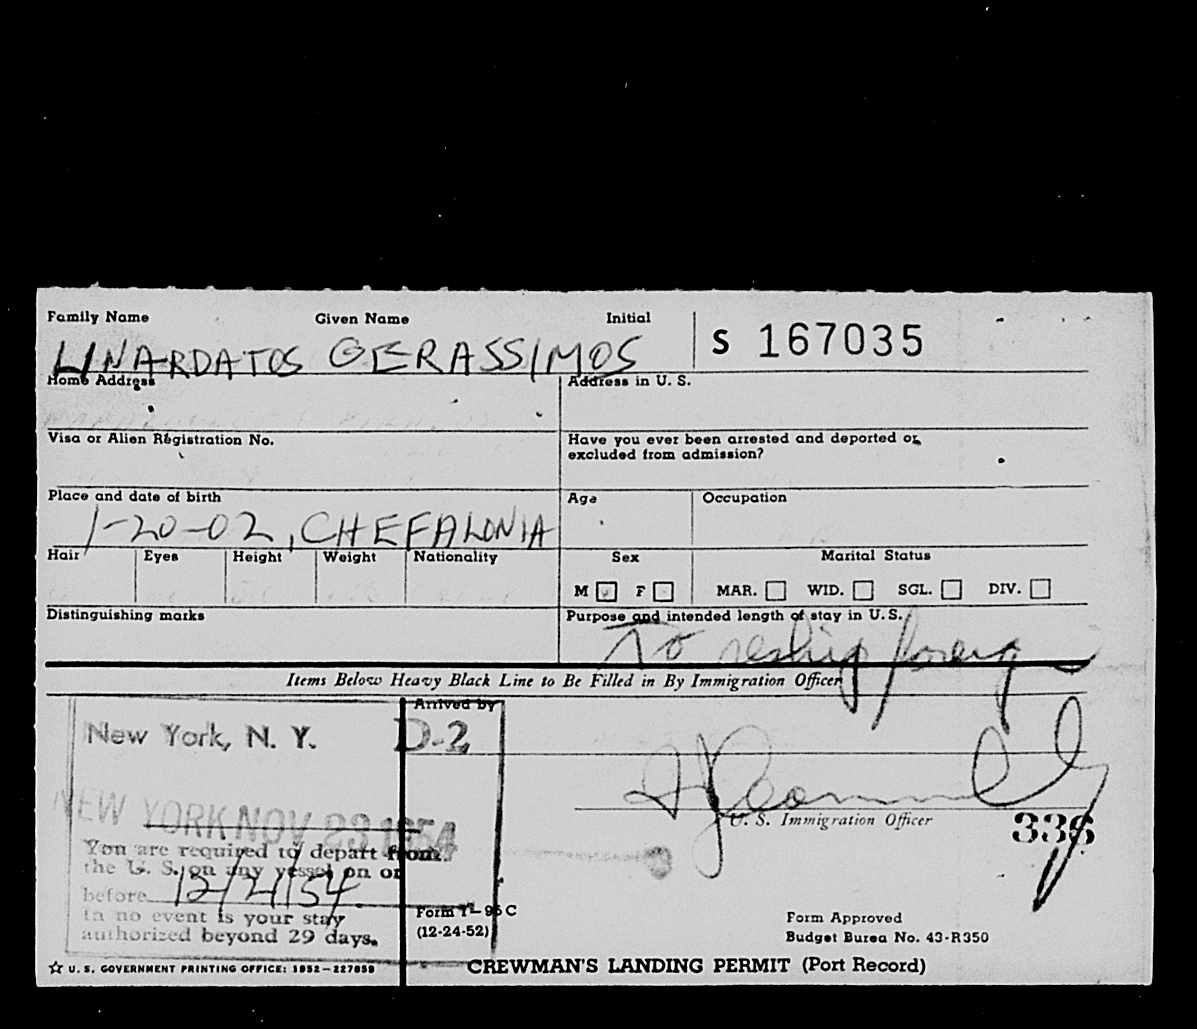 Family Name Given Name Initial
LINARDATOS GERASSIMOS
S 167035
Home Address
Address in U. S.
Visa or Alien Registration No.
Have you ever been arrested and deported or
excluded from admission?
Place and date of birth
1-20-02, CHEFALONIA
Age Occupation
Hair Eyes Height Weight Nationality
Sex Marital Status
M F MAR. WID. SGL. DIV.
Distinguishing marks
Purpose and intended length of stay in U.S.
To reship foreign
Items Below Heavy Black Line to Be Filled in By Immigration Officer
Arrived by
New York, N. Y. D-2
NEW YORK NOV 23 1954
U. S. Immigration Officer
336
You are required to depart from
the U. S. on any vessel on or
before 12/21/54
In no event is your stay
authorized beyond 29 days.
Form I-95 C
(12-24-52)
Form Approved
Budget Burea No. 43-R350
☆ U. S. GOVERNMENT PRINTING OFFICE: 1952-227059
CREWMAN'S LANDING PERMIT (Port Record)